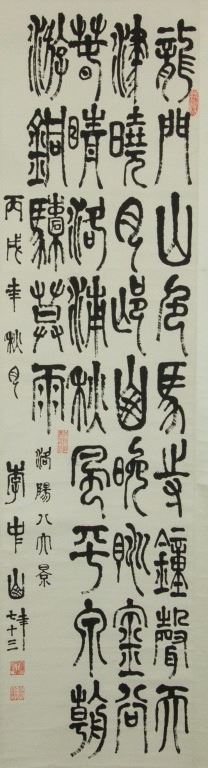 龍門山色馬寺鐘聲天
津曉月邙山晚眺金谷
春晴洛浦秋風平泉朝
游銅駝暮雨
洛陽八大景
丙戌年秋月
李中山年七十三